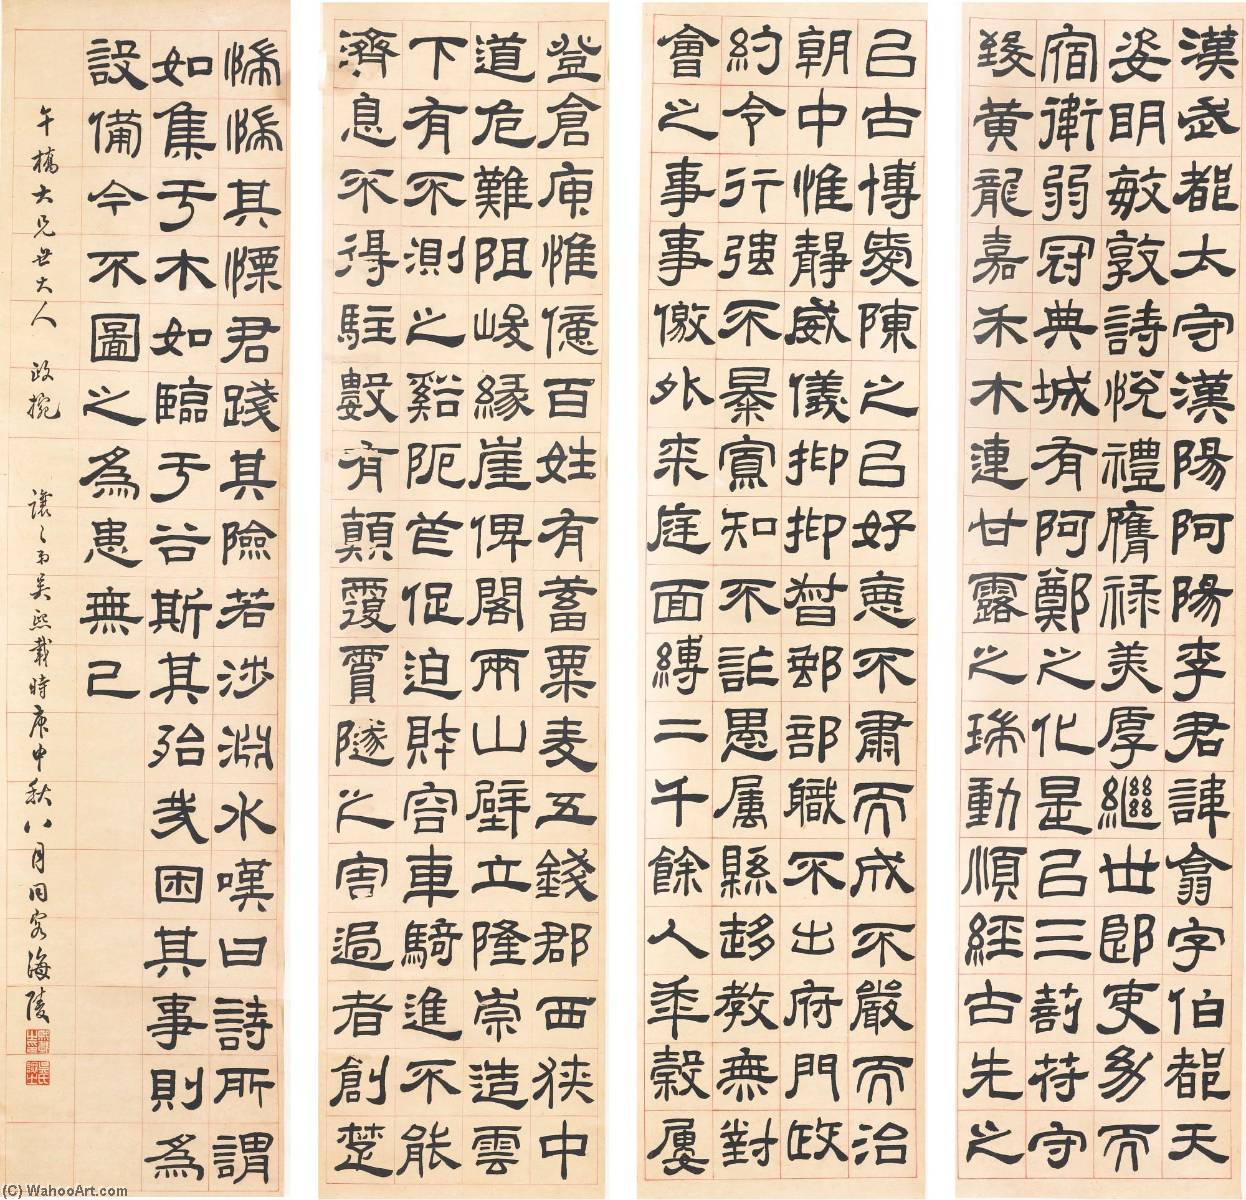 漢武都太守漢陽阿陽李君諱翕字伯都天
姿明敏敦詩悅禮膺祿美厚繼世郎吏幼而
宿衛弱冠典城有阿鄭之化是㠯三剖符守
致黃龍嘉禾木連甘露之瑞動順經古先之
㠯古博愛陳之㠯好惡不肅而成不嚴而治
朝中惟靜威儀抑抑督郵部職不出府門政
約令行強不暴寡知不詐愚属縣趍教無對
會之事事徼外来庭面縛二千餘人年穀屢
登倉庾惟億百姓有蓄粟麦五錢郡西狭中
道危難阻峻緣崖俾閣兩山壁立隆崇造雲
下有不測之谿阨芒促迫財容車騎進不能
濟息不得駐數有顛覆賈隧之害過者創楚
惴惴其慄君踐其險若涉淵水嘆曰詩所謂
如集于木如臨于谷斯其殆哉困其事則為
設備今不圖之為患無已
午橋大兄世大人 政捥 讓之弟吳熙載時庚申秋八月同客海陵
(C) WahooArt.com